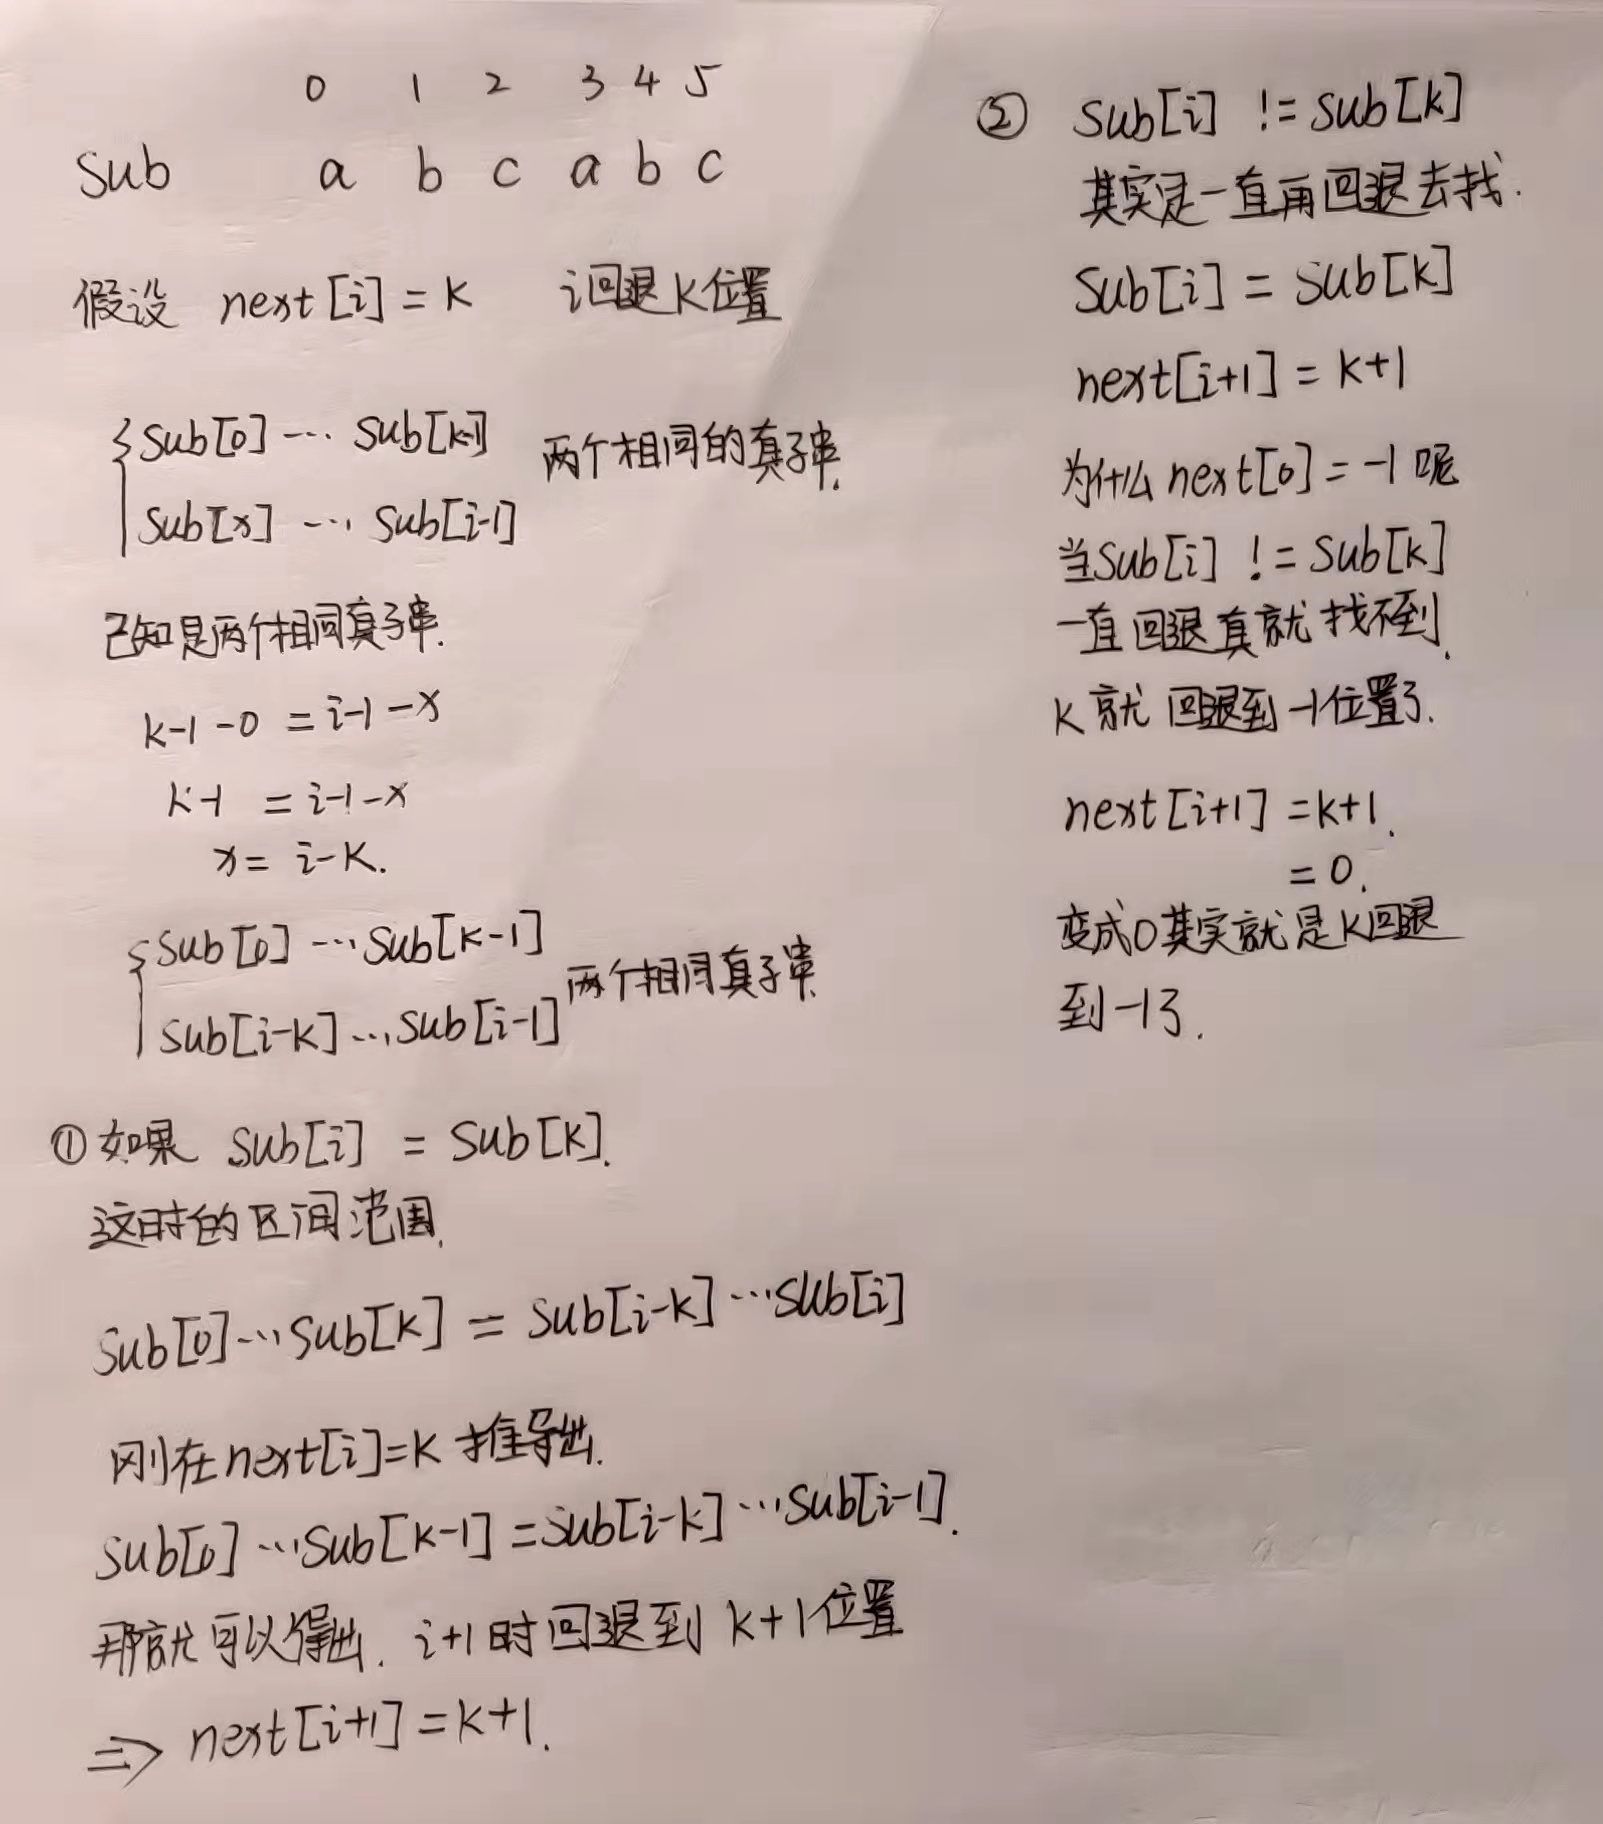 0 1 2 3 4 5
Sub a b c a b c
假设 next[i]=k i回退k位置
Sub[0]…Sub[k-1] 两个相同的真子串.
Sub[x]…Sub[i-1]
已知是两个相同真子串.
k-1-0 = i-1-x
k-1 = i-1-x
x = i-k.
Sub[0]…Sub[k-1] 两个相同真子串
Sub[i-k]…Sub[i-1]
①如果 Sub[i] = Sub[k].
这时的区间范围.
Sub[0]…Sub[k] = Sub[i-k]…Sub[i]
刚在next[i]=k 推导出.
Sub[0]…Sub[k-1] = Sub[i-k]…Sub[i-1].
那就可以得出. i+1时回退到 k+1位置
=> next[i+1]=k+1.
② Sub[i] != Sub[k]
其实是一直再回退去找.
Sub[i] = Sub[k]
next[i+1] = k+1
为什么next[0]=-1呢
当Sub[i] != Sub[k]
一直回退真就找不到.
k就回退到-1位置了.
next[i+1] = k+1.
= 0.
变成0其实就是k回退
到-1了.